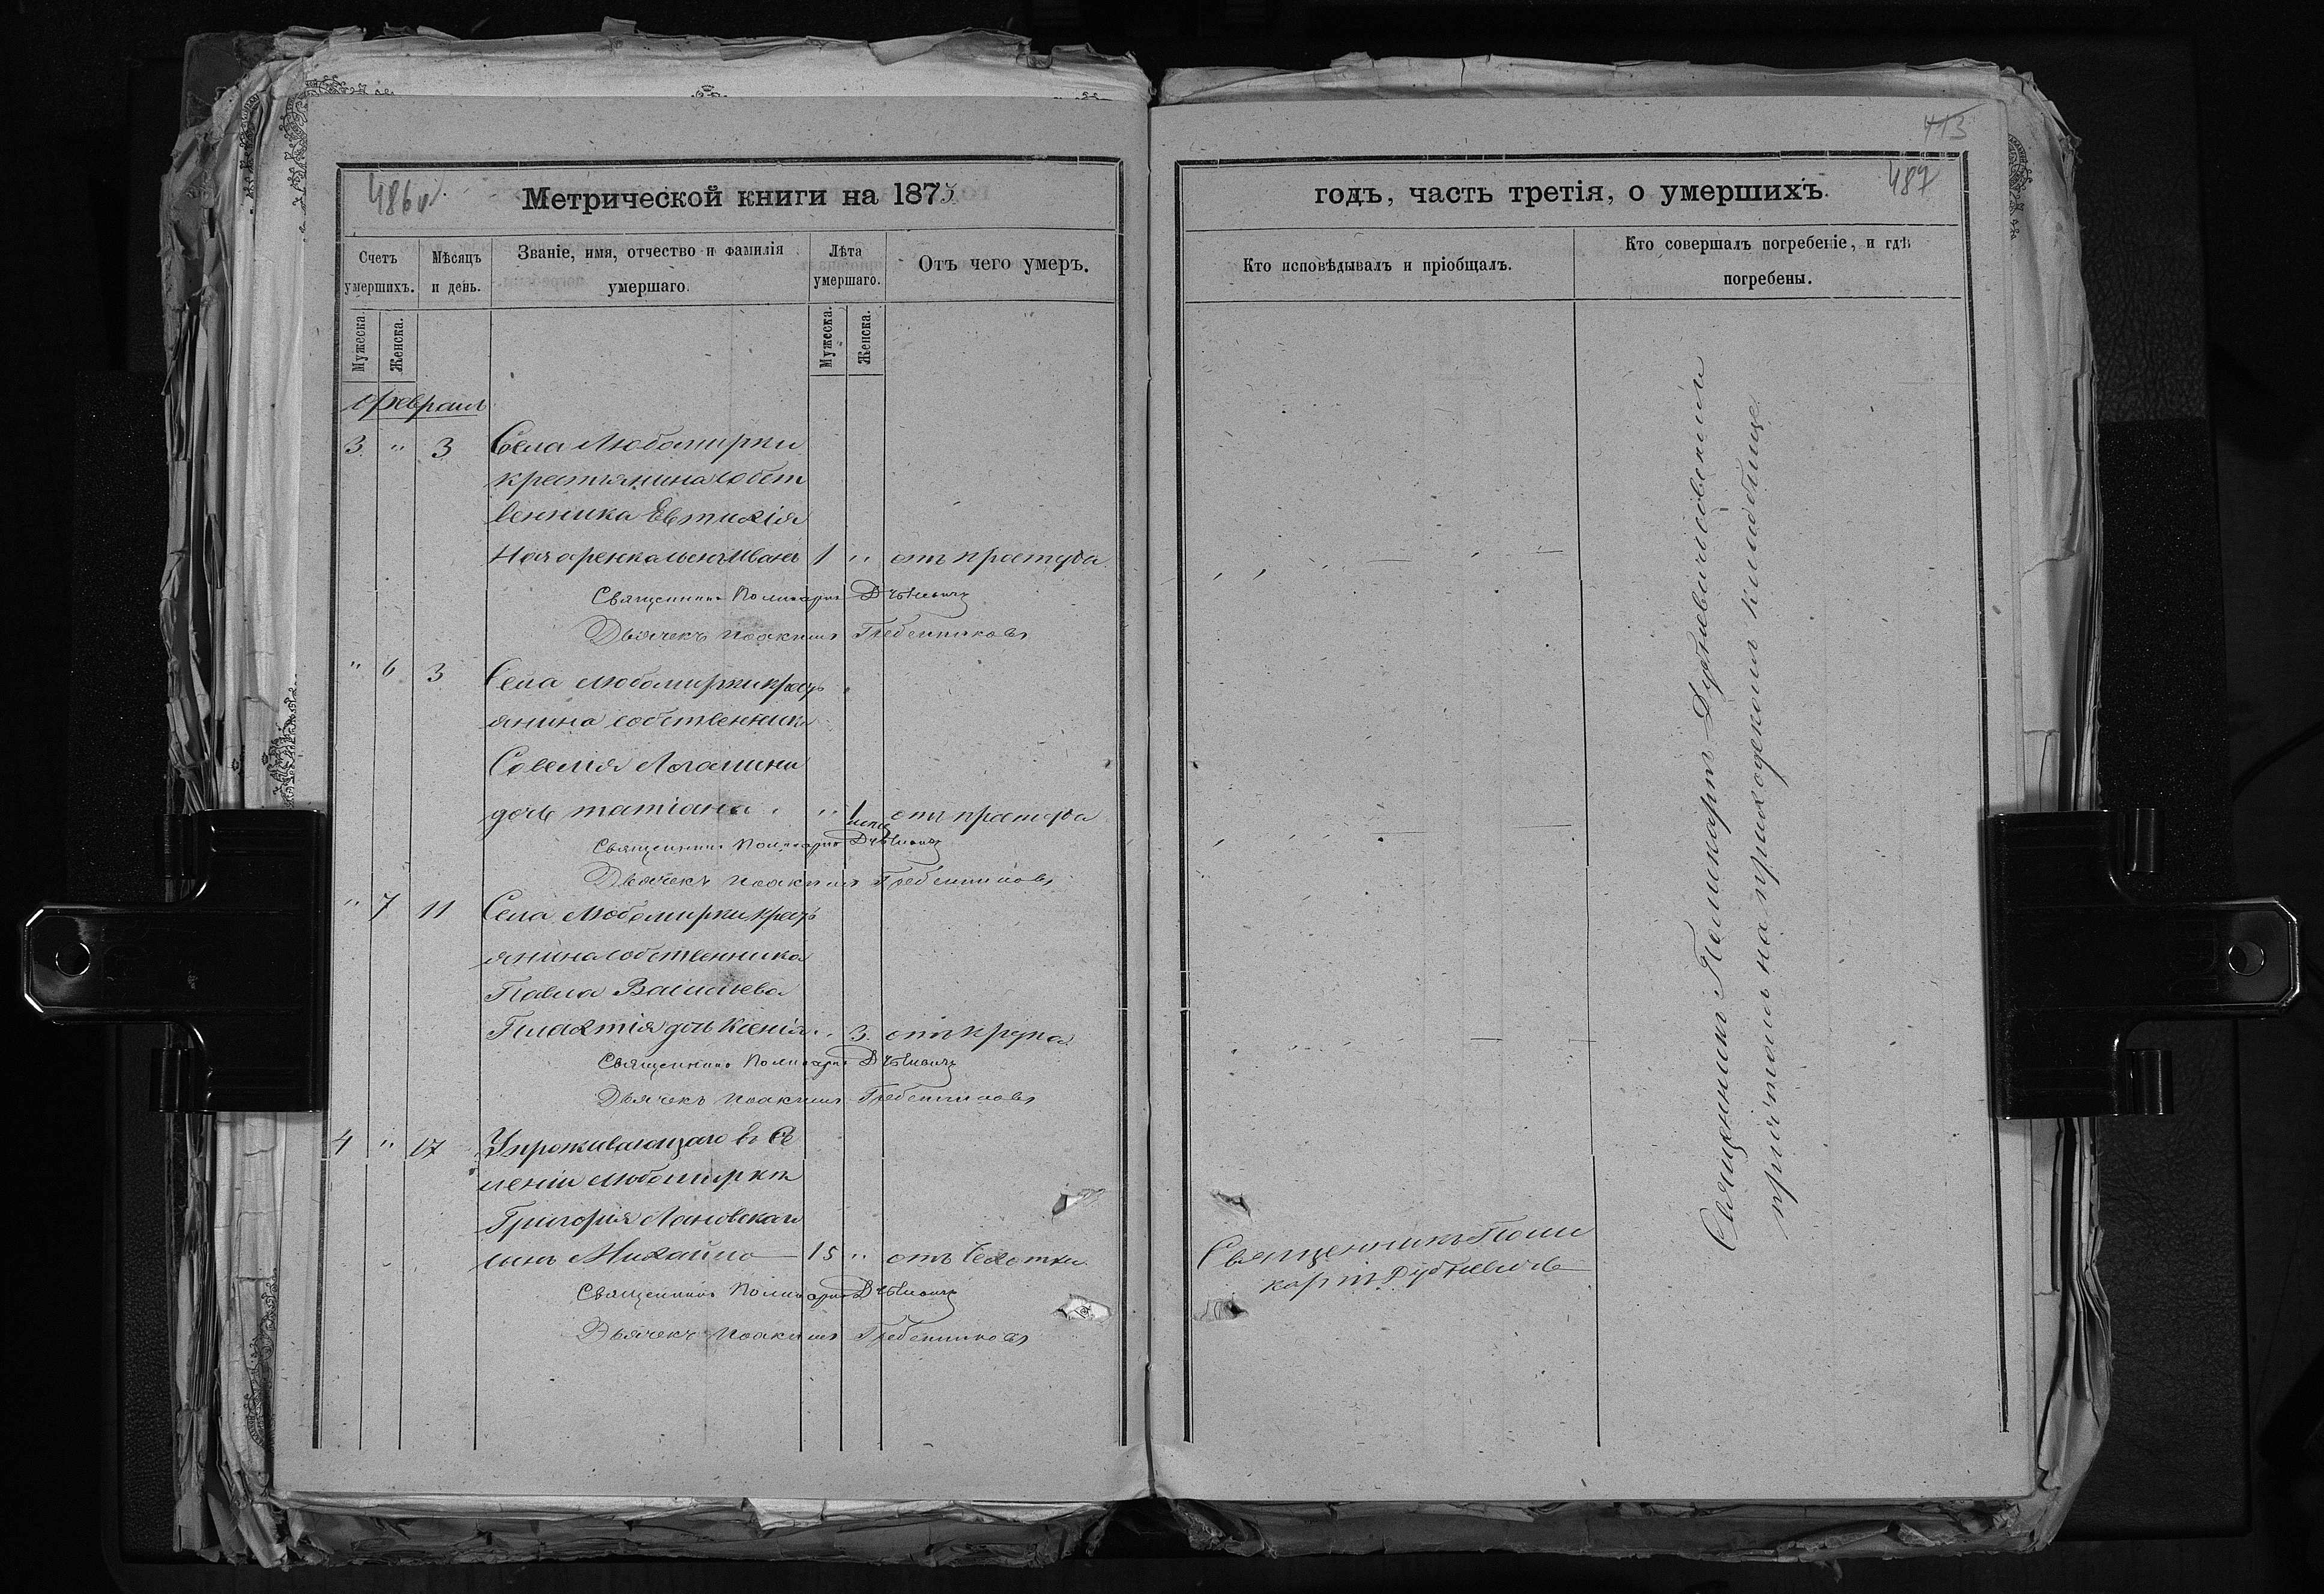 486 v.
Метрической книги на 1875
Счетъ умершихъ.
Мѣсяцъ и день.
Званіе, имя, отчество и фамилія умершаго.
Лѣта умершаго.
Отъ чего умеръ.
Мужеска.
Женска.
Мужеска.
Женска.
Февраль
3 " 3 Села Любомирки
крестьянина собст
венника Евтихія
сынъ Иванъ 1 " отъ простуды
Священникъ Поликарпъ
Дьячекъ Иоакимъ Гребенниковъ
" 6 3 Села Любомирки крест
янина собственника
дочь Татіана " 1 отъ простуды
Священникъ Поликарпъ
Дьячекъ Иоакимъ Гребенниковъ
" 7 11 Села Любомирки крест
янина собственника
Павла Васильева
дочь Ксенія " 3 отъ крупа
Священникъ Поликарпъ
Дьячекъ Иоакимъ Гребенниковъ
4 " 17 Упроживающаго въ Се
леніи Любомиркѣ
Григорія Лановскаго
сынъ Михаилъ 15 " отъ Чехотки
Священникъ Поликарпъ
Дьячекъ Иоакимъ Гребенниковъ
413
487
годъ, часть третія, о умершихъ.
Кто исповѣдывалъ и пріобщалъ.
Кто совершалъ погребеніе, и гдѣ погребены.
Священникъ Поли
карпъ
Священникъ Поликарпъ
причтомъ на приходскомъ кладбище